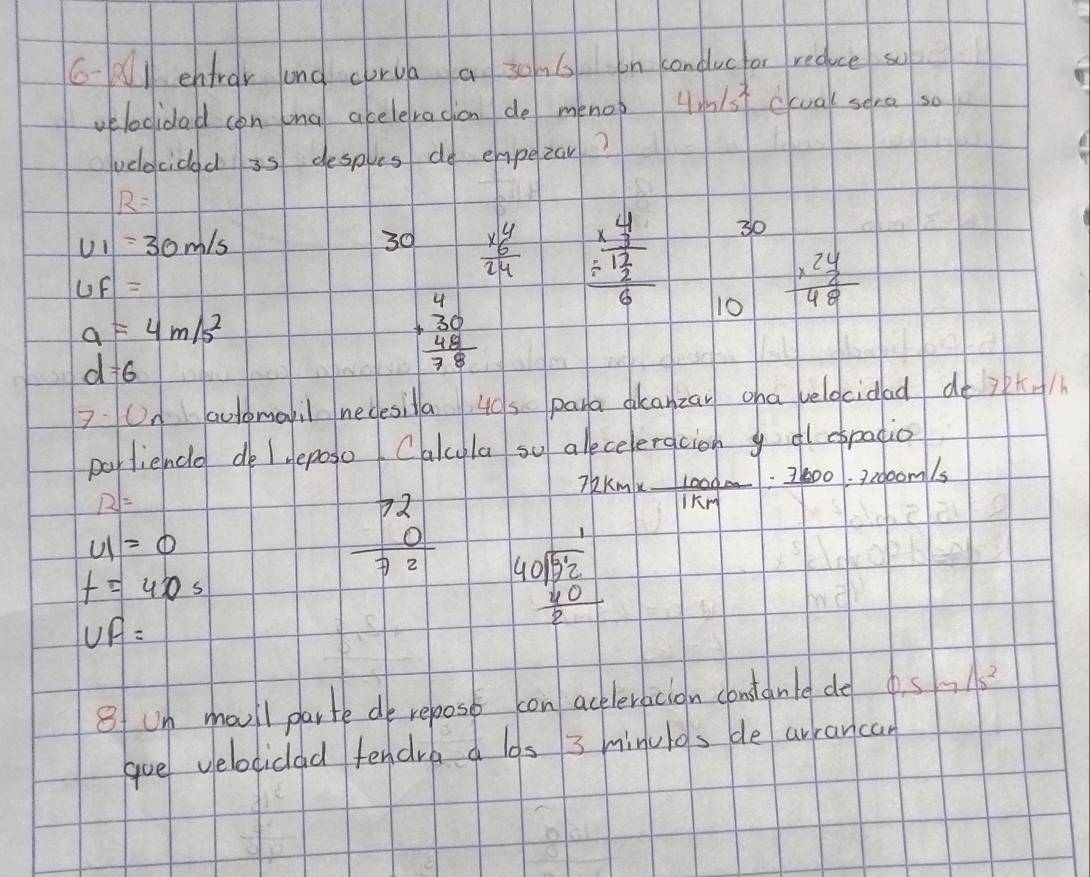 6- Al entrar una curva a 30m/s un conductor reduce su
velocidad con una aceleracion de menos 4m/s² cual sera so
velocidad 3s despues de empezar?
R=
VI = 30 m/s 30 x 4 6 24 x 4 3 ÷ 12 2 6 30
VF = 10 x 24 2 48
a = 4 m/s² 4 + 30 48 78
d=6
7- Un automovil necesita 40s para alcanzar una velocidad de 72Km/h
partiendo del reposo. Calcula su aleceleracion y el espacio
72Km x 1000m 1Km ÷ 3600 = 72000m/s
R= 72
VI = 0 0
t = 40 s 72 40 1 40 2
VF =
8 Un movil parte de reposo con aceleracion constante de 0.5 m/s²
que velocidad tendra a los 3 minutos de arrancar